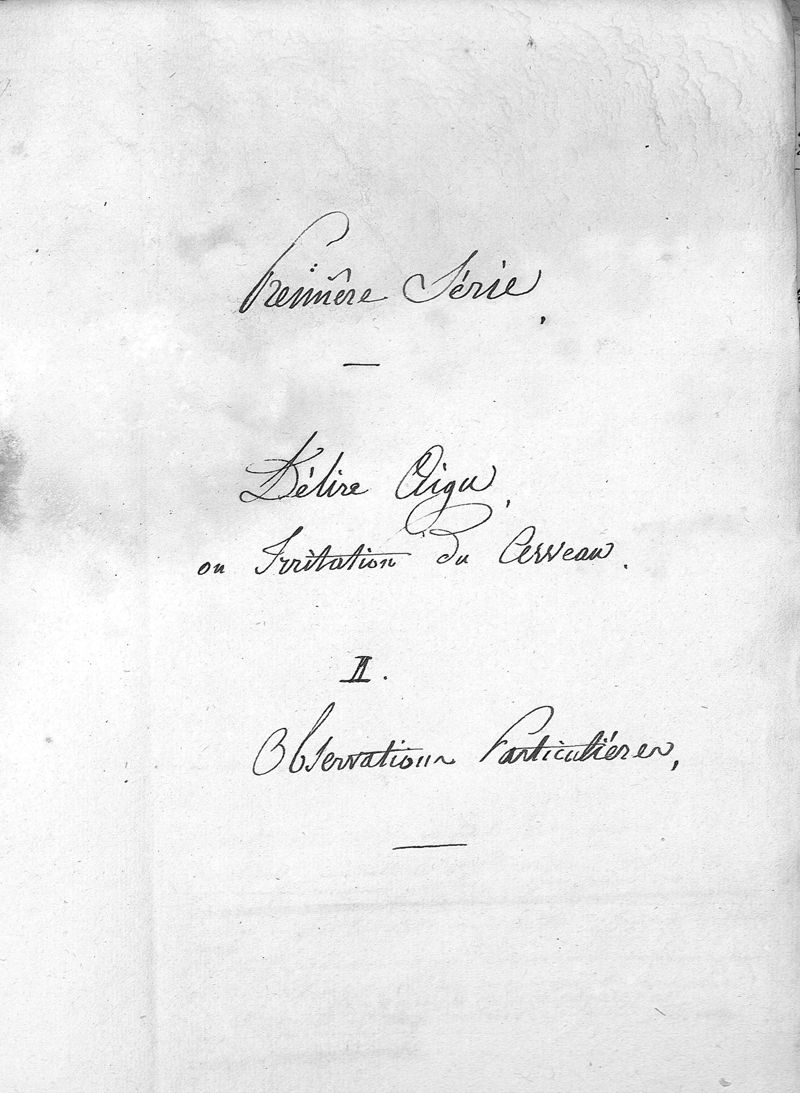 Première Série,
Délire Aigu,
ou Irritation du Cerveau.
II.
Observations Particulières,